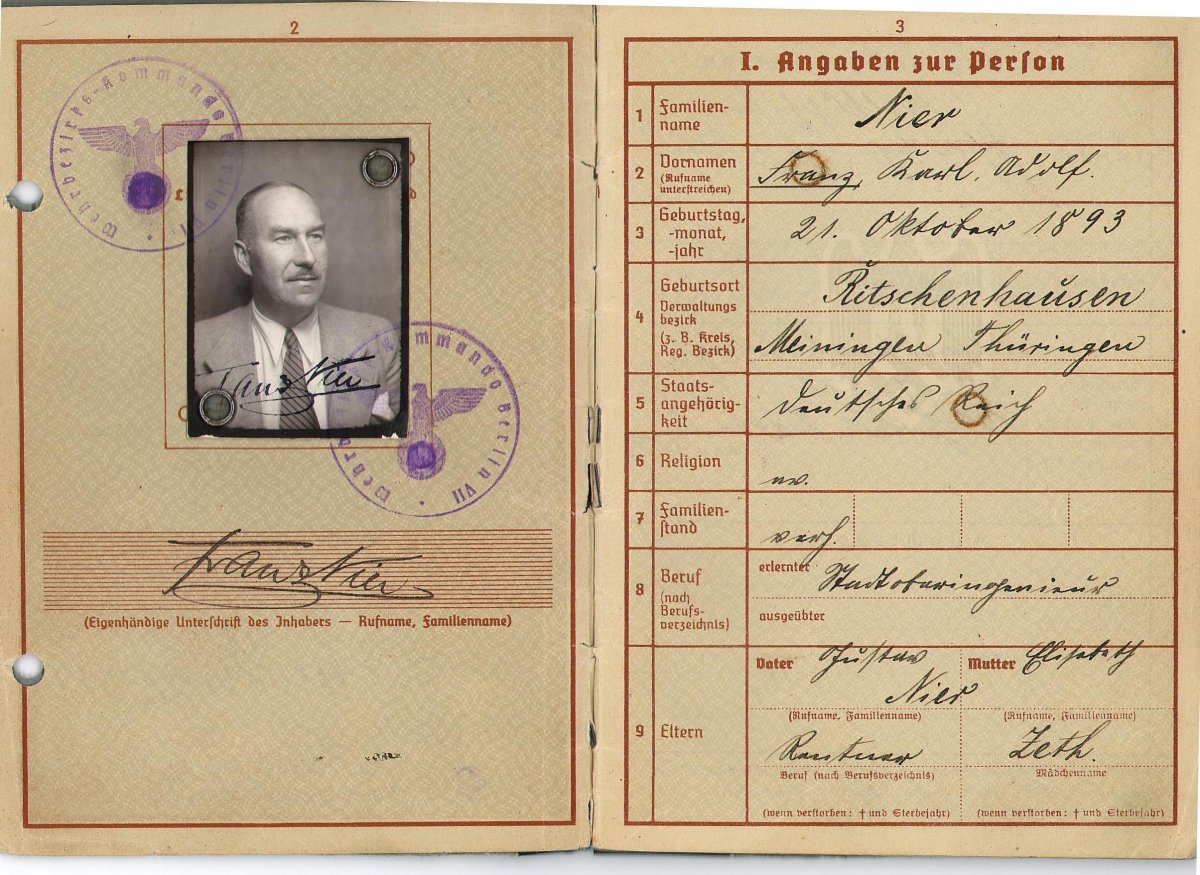 2
Wehrbezirks-Kommando Berlin VII
Franz Nier
Wehrbezirks-Kommando Berlin VII
Franz Nier
(Eigenhändige Unterschrift des Inhabers — Rufname, Familienname)
3
I. Angaben zur Person
1 Familien-
name
Nier
2 Vornamen
(Rufname
unterstreichen)
Franz, Karl, Adolf.
3 Geburtstag,
-monat,
-jahr
21. Oktober 1893
4 Geburtsort
Verwaltungs
bezirk
(z. B. Kreis,
Reg. Bezirk)
Ritschenhausen
Meiningen Thüringen
5 Staats-
angehörig-
keit
deutsches Reich
6 Religion
ev.
7 Familien-
stand
verh.
8 Beruf
(nach
Berufs-
verzeichnis)
erlernter Stadtoberingenieur
ausgeübter
9 Eltern
Vater Gustav
Nier
(Rufname, Familienname)
Rentner
Beruf (nach Berufsverzeichnis)
(wenn verstorben: † und Sterbejahr)
Mutter Elisabeth
(Rufname, Familienname)
Zeth.
Mädchenname
(wenn verstorben: † und Sterbejahr)